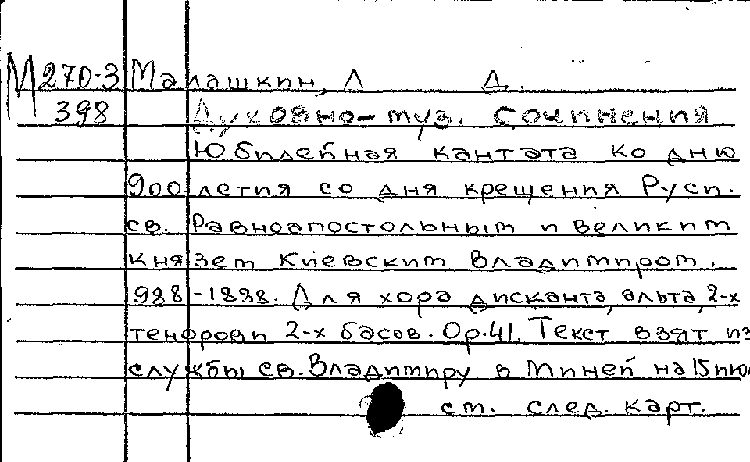 М270-3 Малашкин, Л Д.
398 Духовно-муз. сочинения
Юбилейная кантата ко дню
900-летия со дня крещения Руси.
св. Равноапостольным и великим
князем Киевским Владимиром.
988-1888. Для хора дисканта, альта, 2-х
теноров и 2-х басов. Op. 41. Текст взят из
службы св. Владимиру в Миней на 15 июл
см. след. карт.